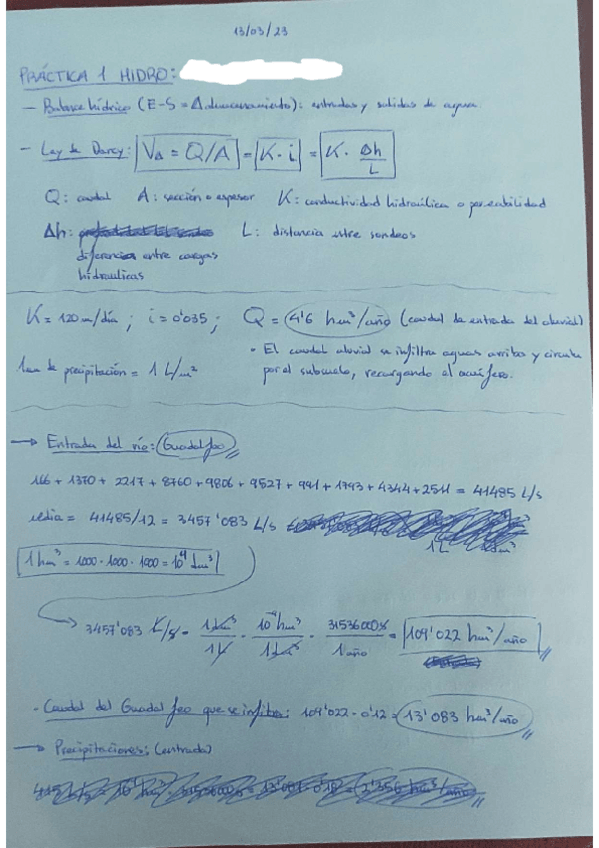 13/03/23
PRÁCTICA 1 HIDRO:
- Balance hídrico (E-S = Δ almacenamiento): entradas y salidas de agua.
- Ley de Darcy: VΔ = Q/A = K · i = K · Δh/L
Q: caudal A: sección o espesor K: conductividad hidraúlica o permeabilidad
Δh: L: distancia entre sondeos
diferencia entre cargas
hidraulicas
K = 120 m/día ; i = 0'035 ; Q = 4'6 hm³/año (caudal de entrada del aluvial)
• El caudal aluvial se infiltra aguas arriba y circula
1mm de precipitación = 1 L/m² por el subsuelo, recargando el acuífero.
→ Entrada del río: Guadalfeo
166 + 1370 + 2217 + 8760 + 9806 + 9527 + 991 + 1793 + 4344 + 2511 = 41485 L/s
media = 41485/12 = 3457'083 L/s
1L
1 hm³ = 1000 · 1000 · 1000 = 10⁹ dm³
3457'083 L/s · 1dm³/1L · 10⁻⁹hm³/1dm³ · 31536000s/1 año = 109'022 hm³/año
· Caudal del Guadalfeo que se infiltra: 109'022 · 0'12 = 13'083 hm³/año
→ Precipitaciones: (entrada)